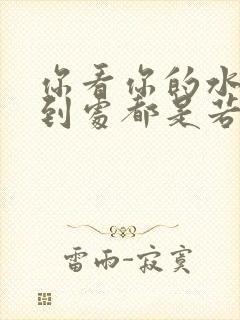 你看你的水
到處都是若
雷雨-寂寞